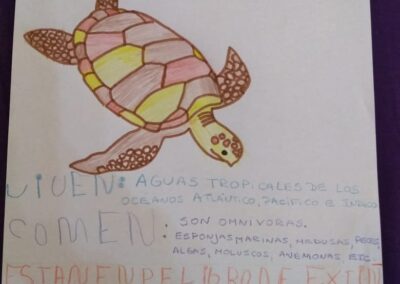 VIVEN: AGUAS TROPICALES DE LOS
OCEANOS ATLÁNTICO, PACÍFICO E INDICO
COMEN: SON OMNIVORAS.
ESPONJAS MARINAS, MEDUSAS, PECES,
ALGAS, MOLUSCOS, ANEMONAS ETC.
ESTAN EN PELIGRO DE EXTIN